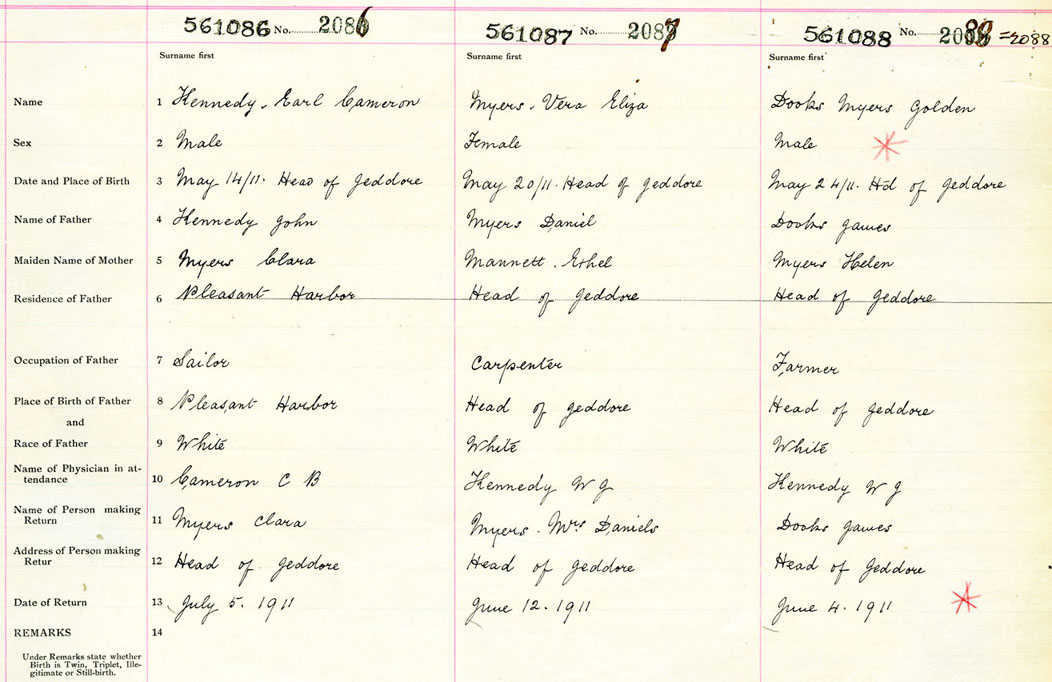 561086 No. 2086 561087 No. 2087 561088 No. 2088 =2088
Surname first Surname first Surname first
Name 1 Kennedy, Earl Cameron Myers, Vera Eliza Dooks Myers Golden
Sex 2 Male Female Male
Date and Place of Birth 3 May 14/11. Head of Jeddore May 20/11. Head of Jeddore May 24/11. Hd of Jeddore
Name of Father 4 Kennedy John Myers Daniel Dooks James
Maiden Name of Mother 5 Myers Clara Mannett. Ethel Myers Helen
Residence of Father 6 Pleasant Harbor Head of Jeddore Head of Jeddore
Occupation of Father 7 Sailor Carpenter Farmer
Place of Birth of Father 8 Pleasant Harbor Head of Jeddore Head of Jeddore
and
Race of Father 9 White White White
Name of Physician in at-
tendance 10 Cameron C B Kennedy W J Kennedy W J
Name of Person making
Return 11 Myers Clara Myers. Mrs Daniels Dooks James
Address of Person making
Retur 12 Head of Jeddore Head of Jeddore Head of Jeddore
Date of Return 13 July 5. 1911 June 12. 1911 June 4. 1911
REMARKS 14
Under Remarks state whether
Birth is Twin, Triplet, Ille-
gitimate or Still-birth.